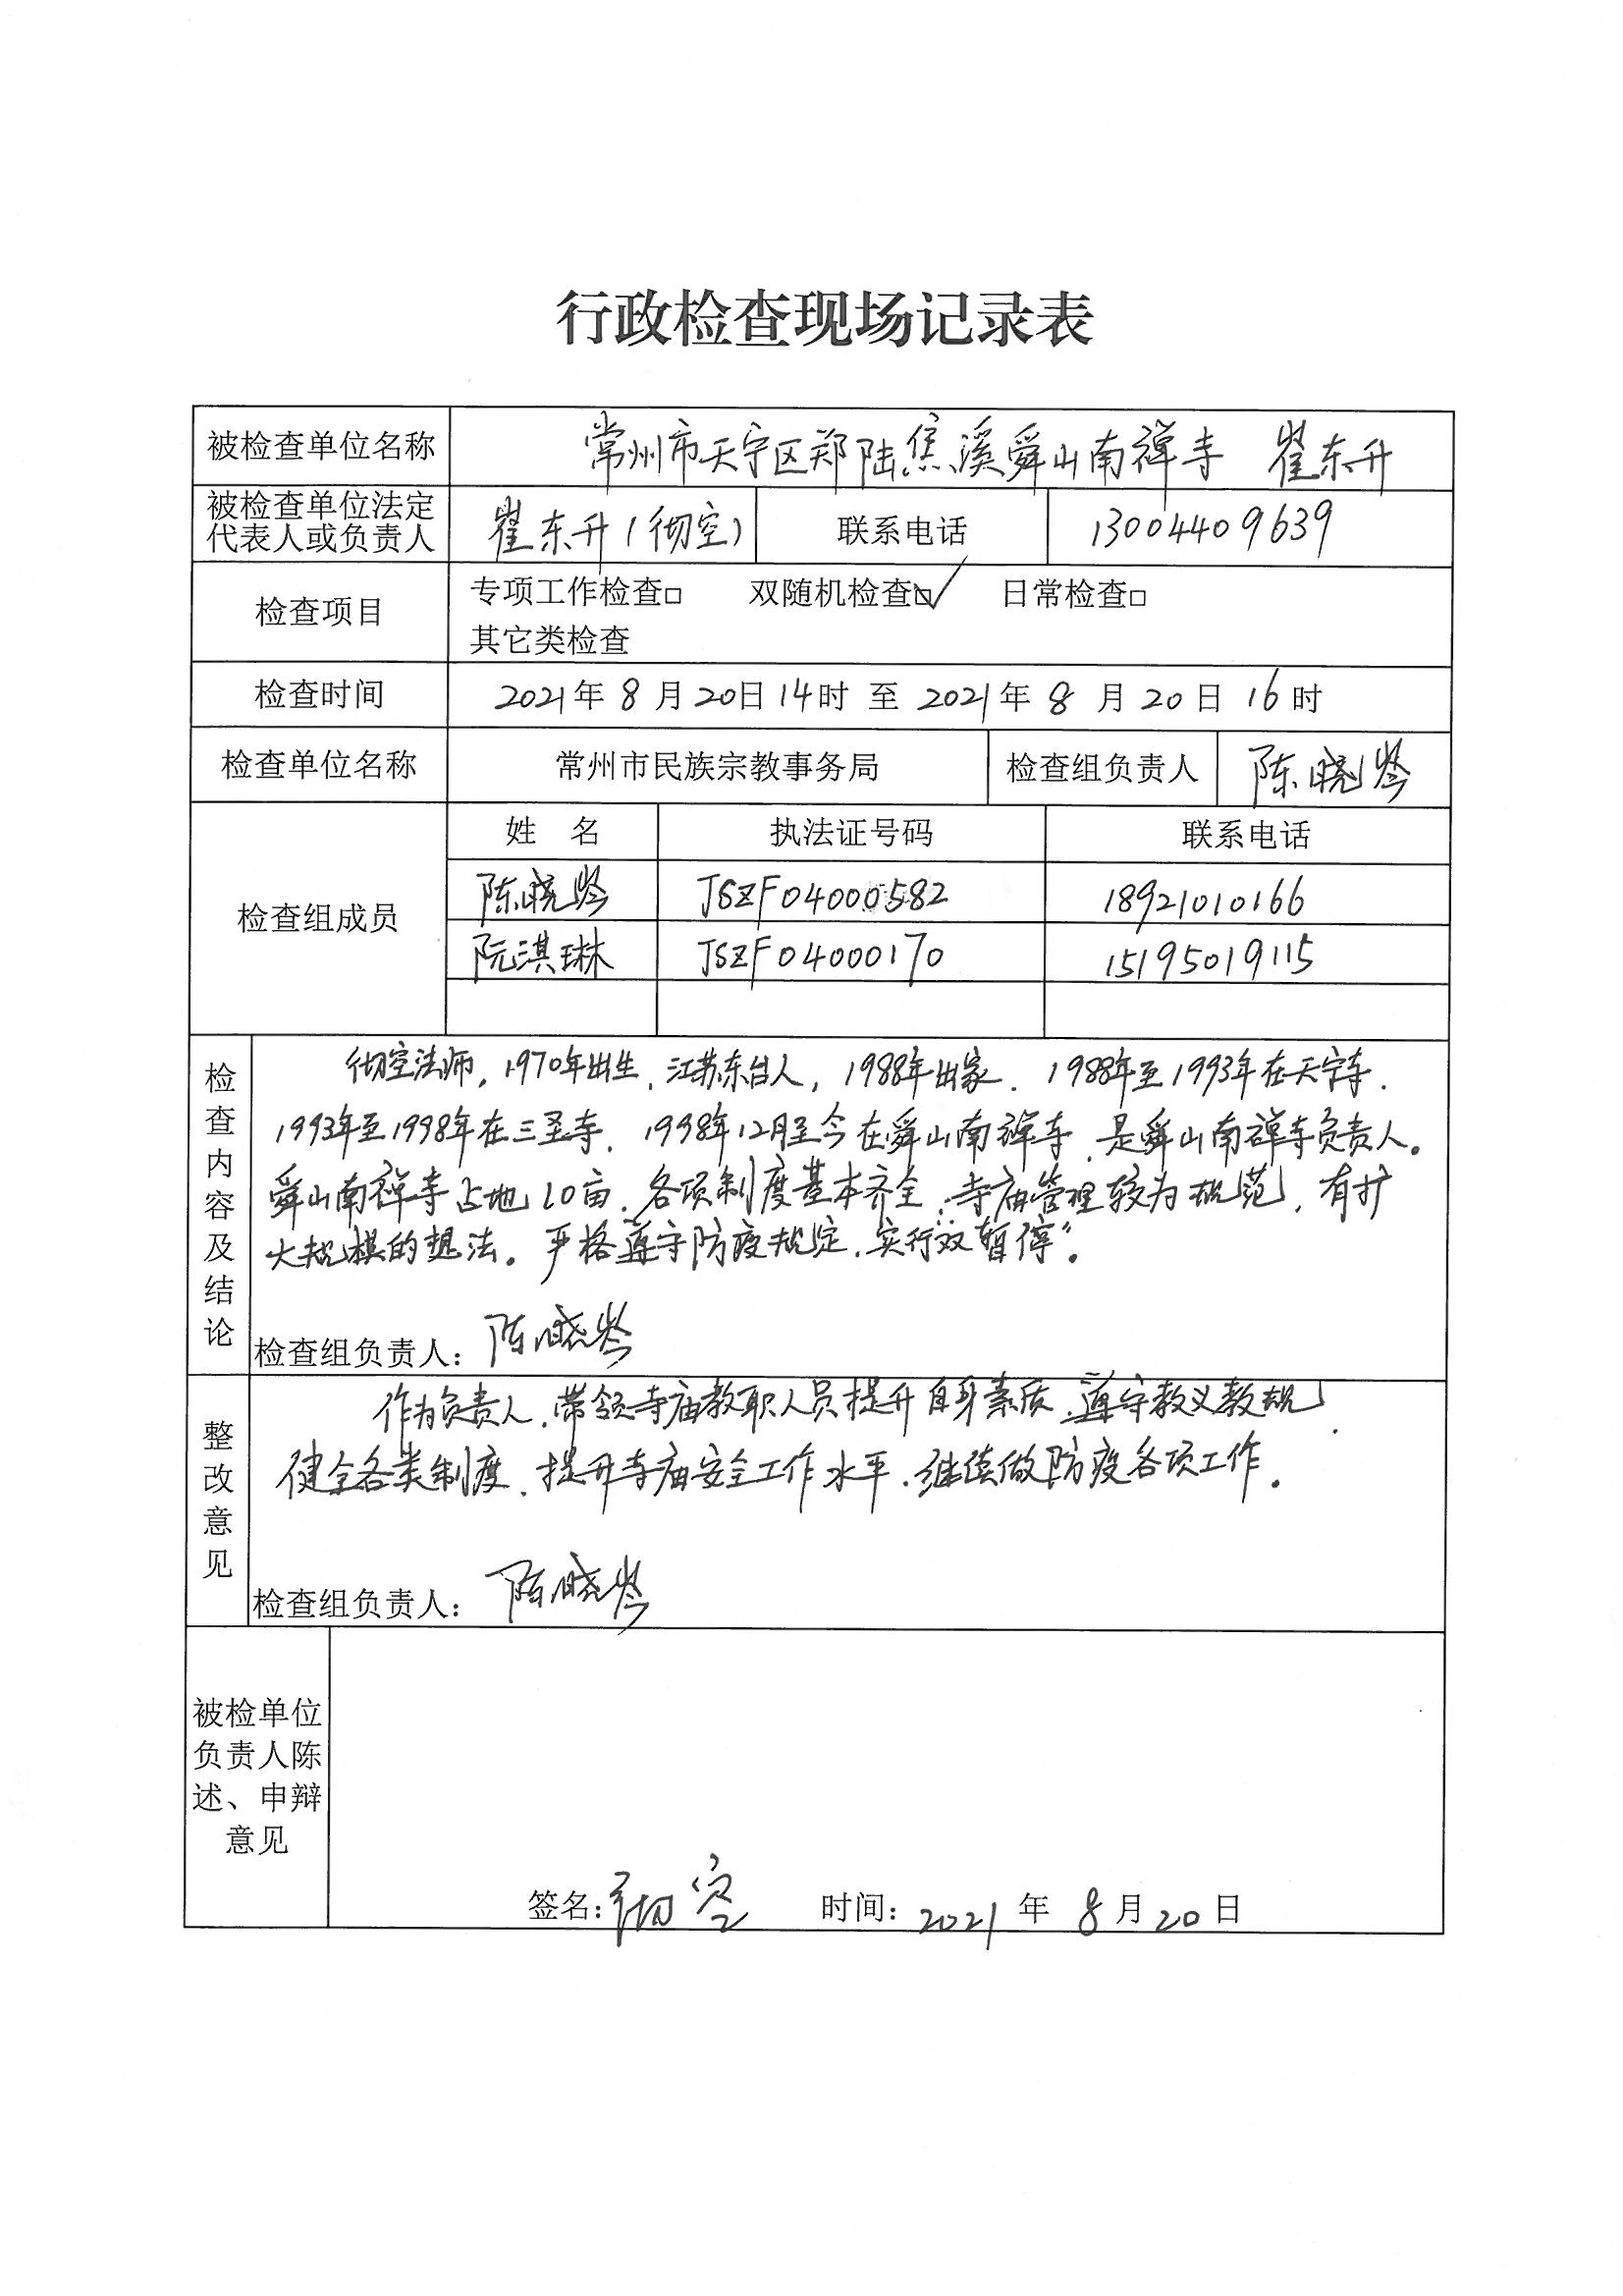 行政检查现场记录表
被检查单位名称 常州市天宁区郑陆焦溪舜山南禅寺 崔东升
被检查单位法定代表人或负责人 崔东升(彻空) 联系电话 13004409639
检查项目 专项工作检查□ 双随机检查☑ 日常检查□
其它类检查
检查时间 2021年8月20日14时 至 2021年8月20日16时
检查单位名称 常州市民族宗教事务局 检查组负责人 陈晓岑
检查组成员 姓 名 执法证号码 联系电话
陈晓岑 JSZF04000582 18921010166
阮淇琳 JSZF04000170 15195019115
检查内容及结论
彻空法师,1970年出生,江苏东台人,1988年出家.1988年至1993年在天宁寺.
1993年至1998年在三圣寺.1998年12月至今在舜山南禅寺,是舜山南禅寺负责人。
舜山南禅寺占地10亩.各项制度基本齐全,寺庙管理较为规范,有扩
大规模的想法。严格遵守防疫规定,实行“双暂停”。
检查组负责人:陈晓岑
整改意见
作为负责人,带领寺庙教职人员提升自身素质,遵守教义教规.
健全各类制度,提升寺庙安全工作水平.继续做防疫各项工作。
检查组负责人:陈晓岑
被检单位负责人陈述、申辩意见
签名:彻空 时间:2021年8月20日